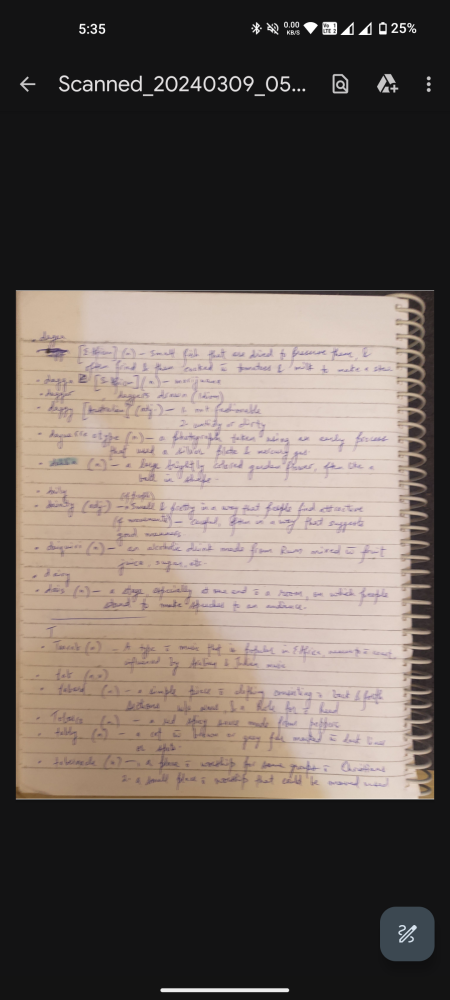 5:35
0.00
KB/S
Vo 1
LTE 2
25%
Scanned_20240309_05...
[E African] (n) - small fish that are dried to preserve them, &
often fried & then cooked in tomatoes & milk to make a stew
dagga (n) - marijuana
daggers drawn (idiom)
(adj) - 1. not fashionable
2. untidy or dirty
(n) - a photograph taken using an early process
that used a silver plate & mercury gas
(n) - a large brightly colored garden flower, often like a
ball in shape
daily
(of people)
dainty (adj) - small & pretty in a way that people find attractive
(of movements) - careful, often in a way that suggests
good manners
daiquiri (n) - an alcoholic drink made from rum mixed fruit
juice, sugar, etc.
dairy
dais (n) - a stage, especially at one end a room, on which people
stand to make speeches to an audience.
T
(n) - A type music that is popular in E Africa,
by Arabian & Indian music
tab (n,v)
tabard (n) - a simple piece clothing consisting back & front
sections w/o & a hole for head
Tabasco (n) - a red spicy sauce made from peppers
tabby (n) - a cat brown or grey fur marked dark lines
or spots
tabernacle (n) - 1. a place worship for some groups Christians
2. a small place worship that could be moved used